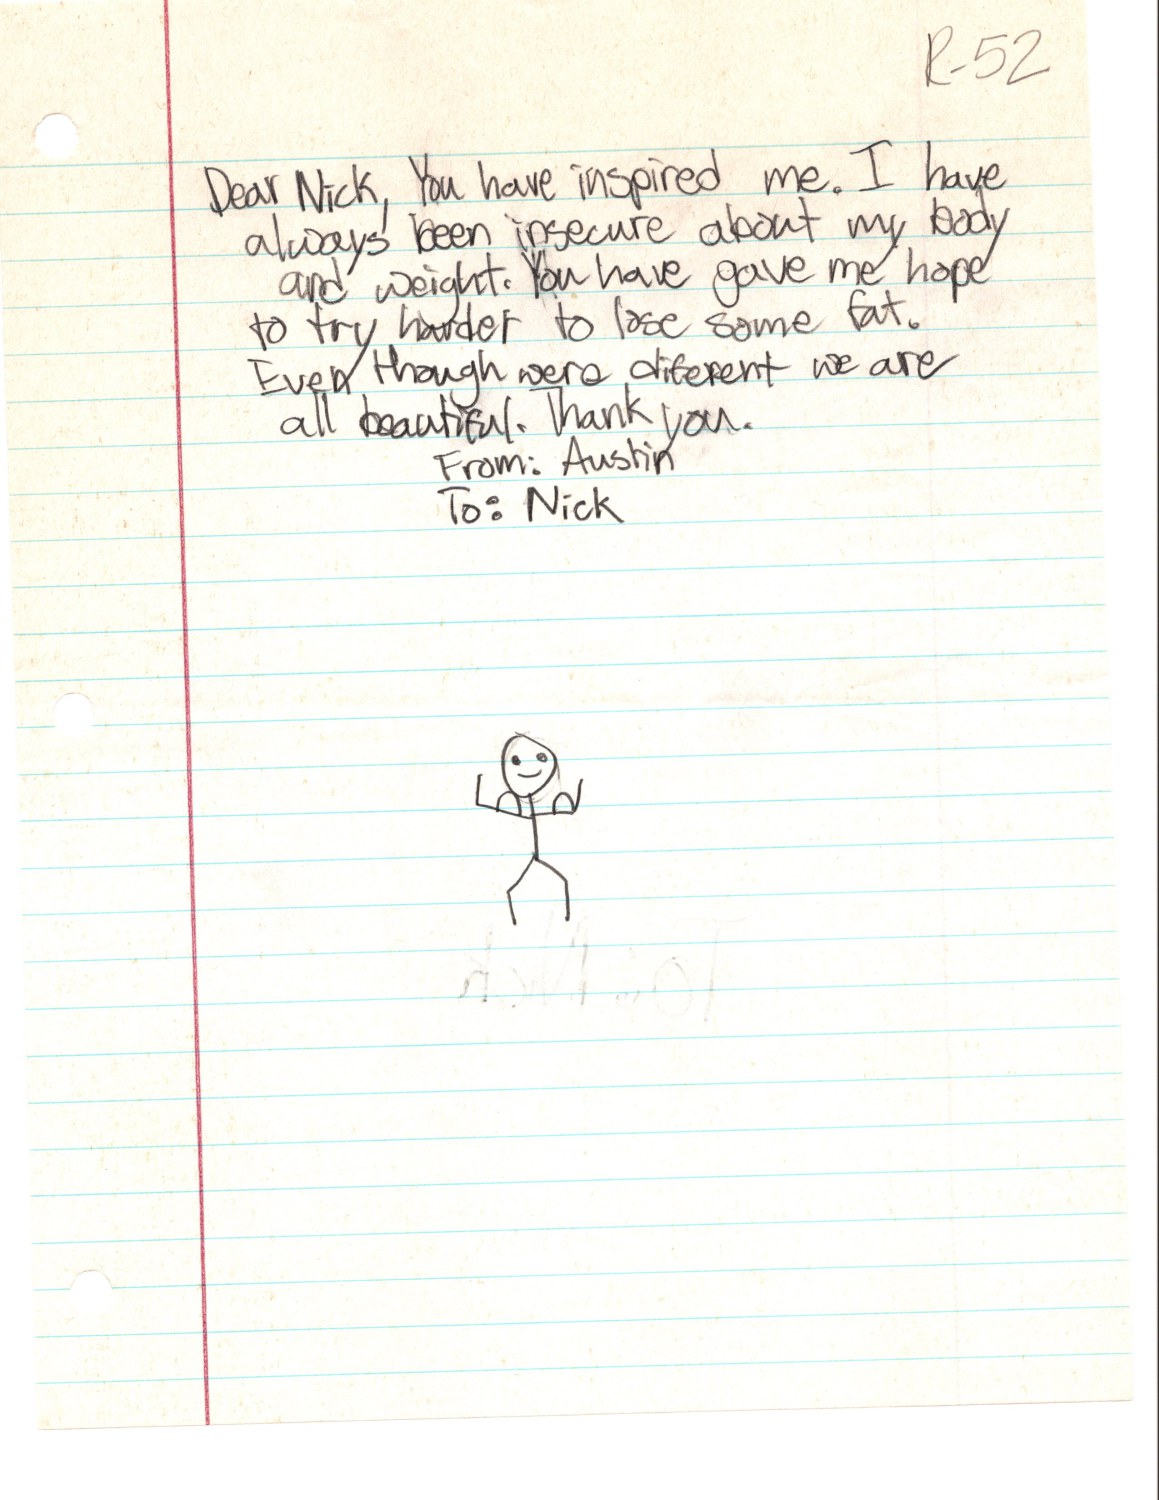 R-52
Dear Nick, You have inspired me. I have
always been insecure about my body
and weight. You have gave me hope
to try harder to lose some fat.
Even though were diferent we are
all beautiful. Thank you.
From: Austin
To: Nick
To: Nick